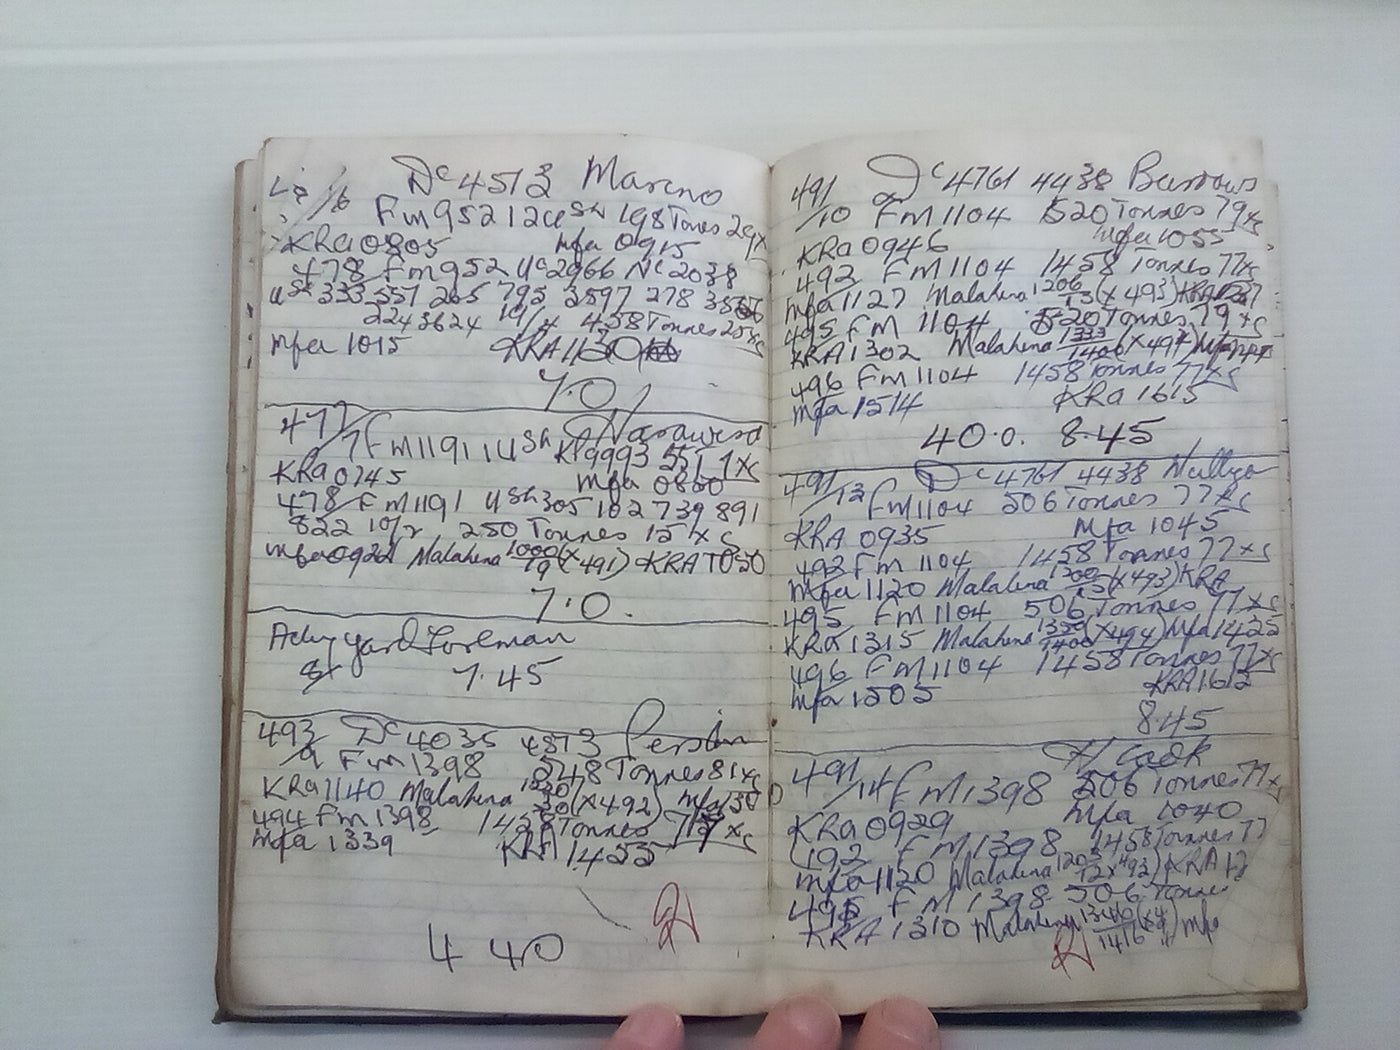 Dc 4513 Mareno
/6 Fm 952 12 ush 198 Tonnes 29xs
KRa 0805 mfa 0915
478 Fm 952 Uc 2966 Nc 2038
ush 333 357 265 795 3597 278
2243624 19/4 458 Tonnes 25xs
mfa 1015 KRA 1130
7.0
477/7 Fm 1191 1 ush KP9993 551 1xs
KRa 0745 mfa 0850
478 Fm 1191 ush 305 102 739 891
822 10/2 250 Tonnes 15xs
mfa 0922 Malahina 1000/19 (x 491) KRA 1030
7.0.
Actg yard Foreman
7.45
493/9 Dc 4035 4513
Fm 1398 548 Tonnes 81xs
KRa 1140 Malahina (x 492) mfa
494 Fm 1398 1458 Tonnes xs
mfa 1339 KRA 1455
4 40
491/10 Dc 4761 4438 Burrows
Fm 1104 520 Tonnes 79xs
KRa 0946 mfa 1055
492 Fm 1104 1458 Tonnes 77xs
mfa 1127 Malahina 1206/13 (x 493) KRA
495 Fm 1104 520 Tonnes 79xs
KRA 1302 Malahina 1333/1406 (x 494) mfa
496 Fm 1104 1458 Tonnes 77xs
mfa 1514 KRa 1615
40.0. 8.45
491/13 Dc 4761 4438
Fm 1104 506 Tonnes 77xs
KRA 0935 mfa 1045
492 Fm 1104 1458 Tonnes 77xs
mfa 1120 Malahina (x 493) KRA
495 Fm 1104 506 Tonnes 77xs
KRa 1315 Malahina 1350/1400 (x 494) mfa 1425
496 Fm 1104 1458 Tonnes 77xs
mfa 1505 KRA 1612
8.45
491/14 Fm 1398 506 Tonnes 77xs
KRa 0929 mfa 1040
492 Fm 1398 1458 Tonnes 77
mfa 1120 Malahina (x 493) KRA
495 Fm 1398 506 Tonnes
KRA 1310 Malahina 1340/1416 mfa